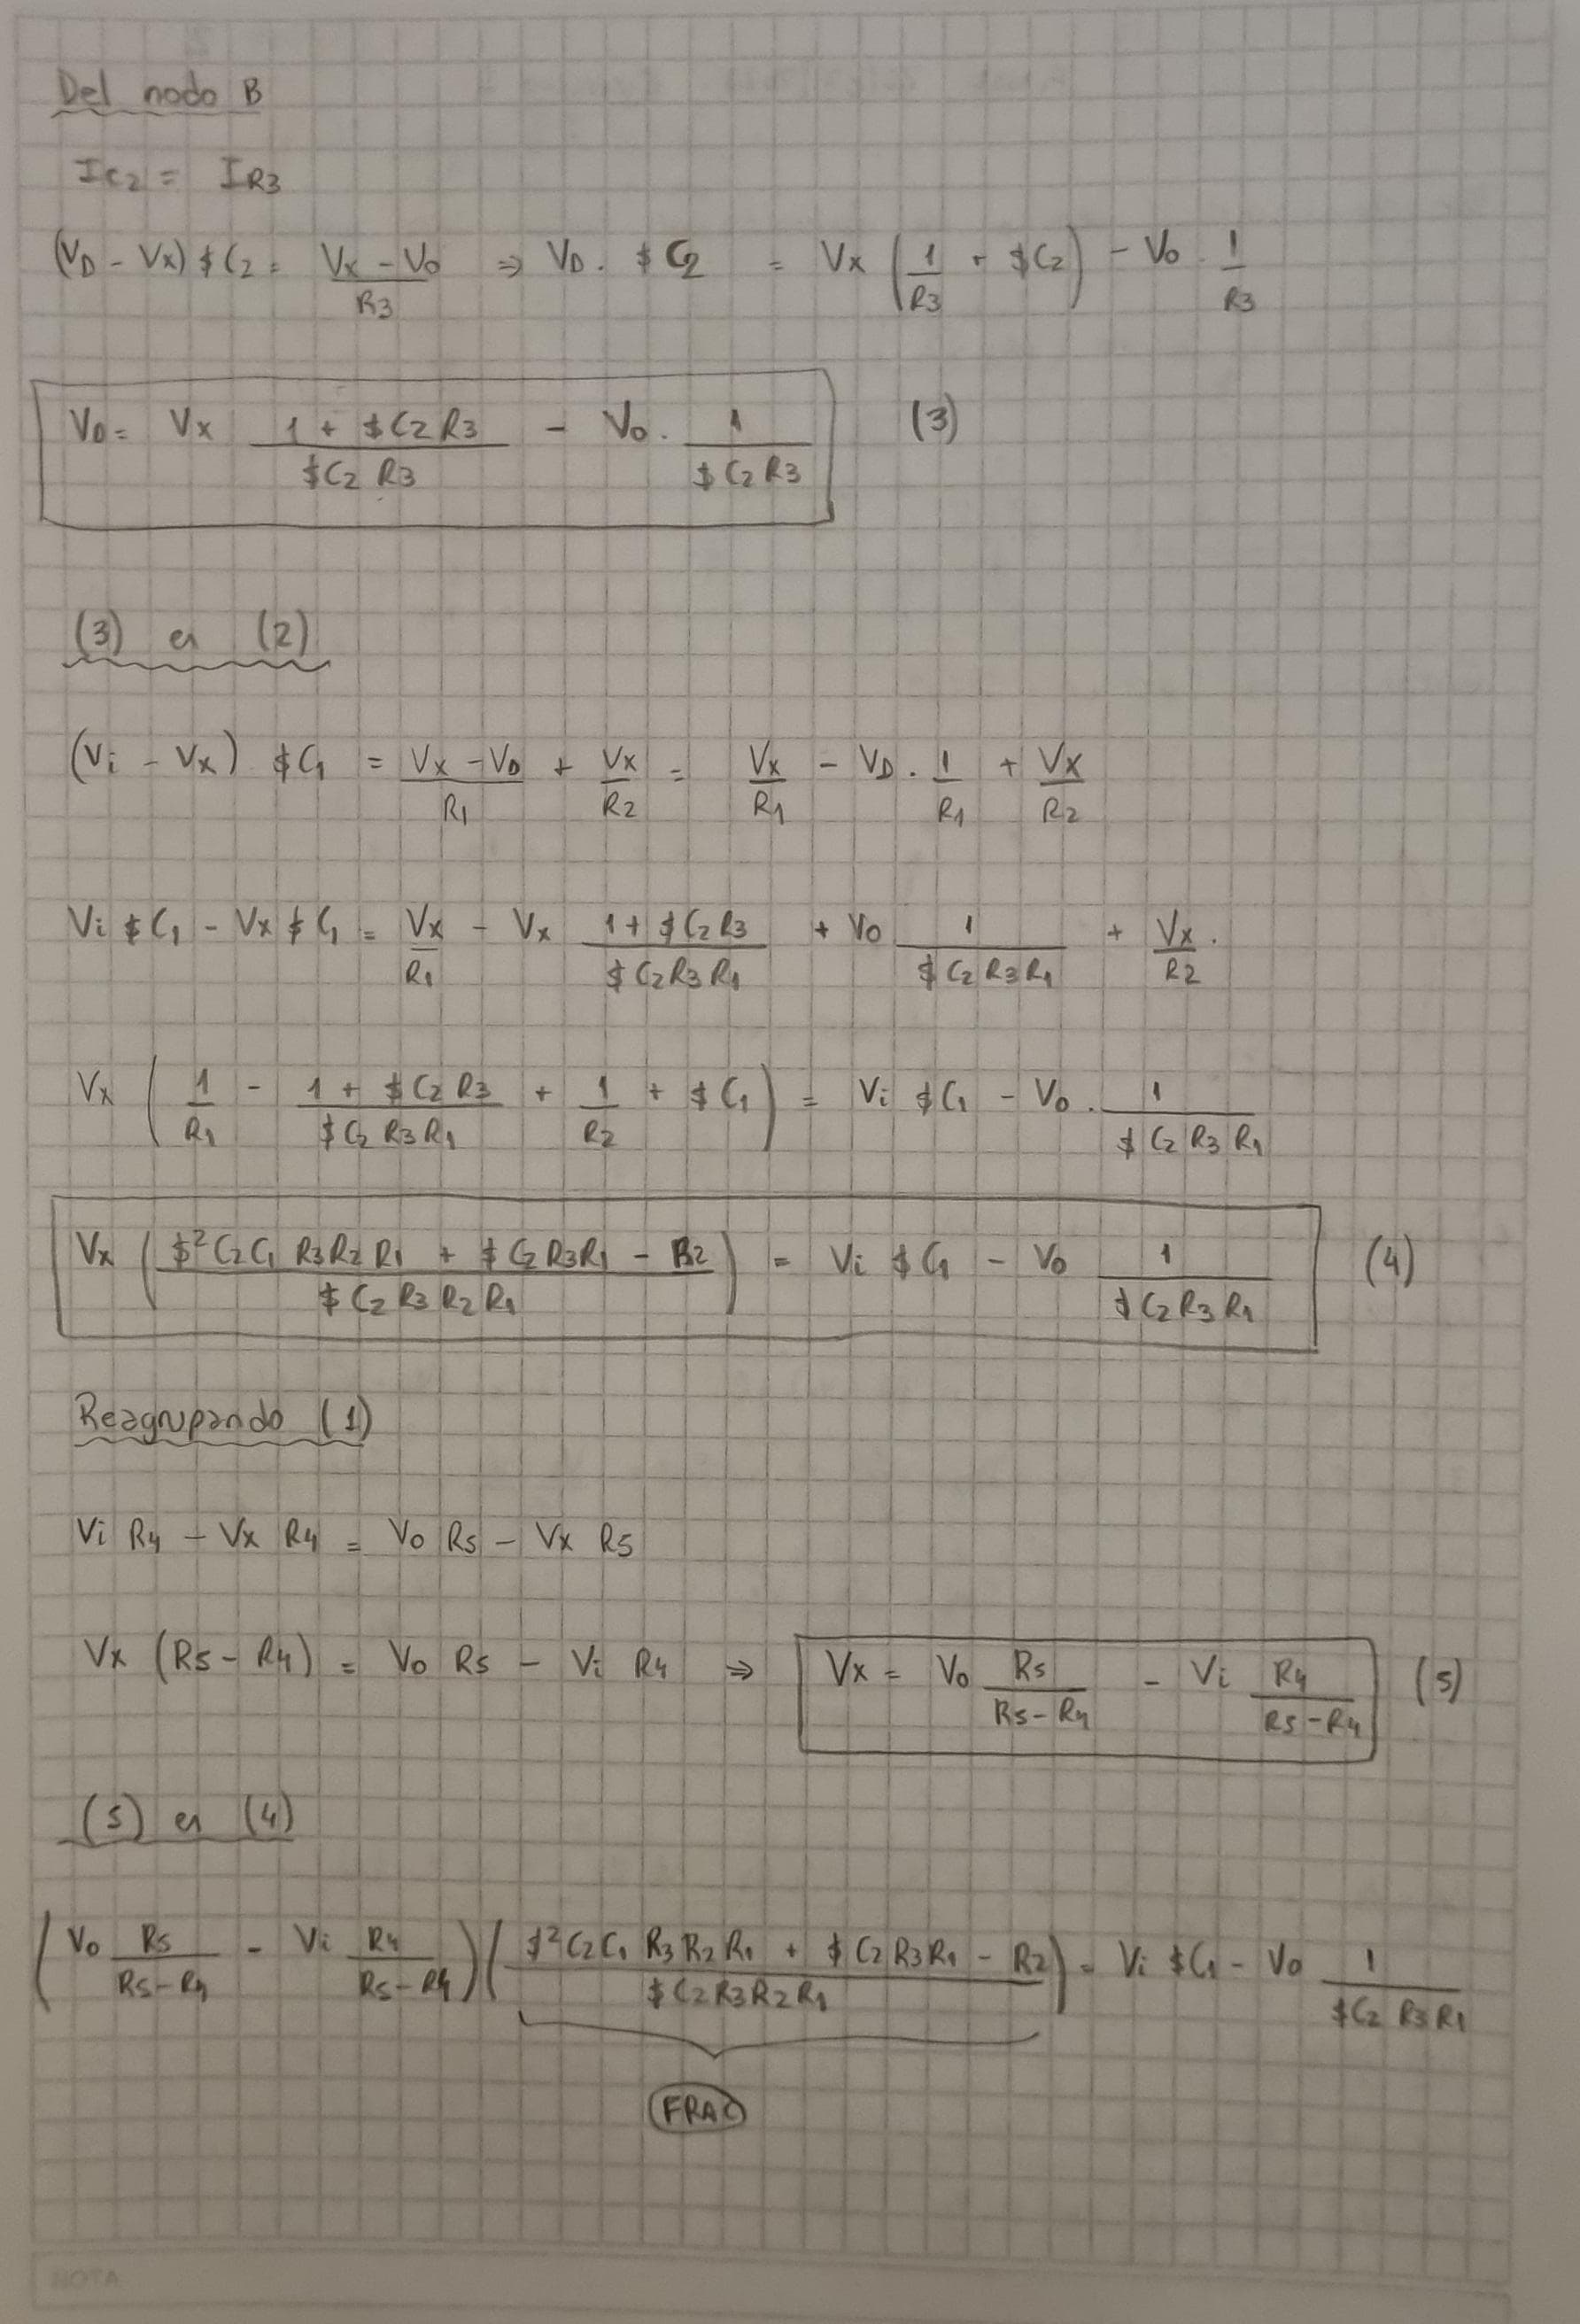 Del nodo B
I_{C2} = I_{R3}
(V_D - V_X) $C_2 = \frac{V_X - V_0}{R_3} ⇒ V_D . $C_2 = V_X (\frac{1}{R_3} + $C_2) - V_0 . \frac{1}{R_3}
V_D = V_X \frac{1 + $C_2 R_3}{$C_2 R_3} - V_0 . \frac{1}{$C_2 R_3} (3)
(3) en (2)
(V_i - V_X) $C_1 = \frac{V_X - V_D}{R_1} + \frac{V_X}{R_2} = \frac{V_X}{R_1} - V_D . \frac{1}{R_1} + \frac{V_X}{R_2}
V_i $C_1 - V_X $C_1 = \frac{V_X}{R_1} - V_X \frac{1 + $C_2 R_3}{$C_2 R_3 R_1} + V_0 \frac{1}{$C_2 R_3 R_1} + \frac{V_X}{R_2} .
V_X (\frac{1}{R_1} - \frac{1 + $C_2 R_3}{$C_2 R_3 R_1} + \frac{1}{R_2} + $C_1) = V_i $C_1 - V_0 . \frac{1}{$C_2 R_3 R_1}
V_X (\frac{$^2 C_2 C_1 R_3 R_2 R_1 + $C_2 R_3 R_1 - R_2}{$C_2 R_3 R_2 R_1}) = V_i $C_1 - V_0 \frac{1}{$C_2 R_3 R_1} (4)
Reagrupando (1)
V_i R_4 - V_X R_4 = V_0 R_5 - V_X R_5
V_X (R_5 - R_4) = V_0 R_5 - V_i R_4 ⇒ V_X = V_0 \frac{R_5}{R_5 - R_4} - V_i \frac{R_4}{R_5 - R_4} (5)
(5) en (4)
(V_0 \frac{R_5}{R_5 - R_4} - V_i \frac{R_4}{R_5 - R_4}) (\frac{$^2 C_2 C_1 R_3 R_2 R_1 + $C_2 R_3 R_1 - R_2}{$C_2 R_3 R_2 R_1}) = V_i $C_1 - V_0 \frac{1}{$C_2 R_3 R_1}
FRAC
NOTA